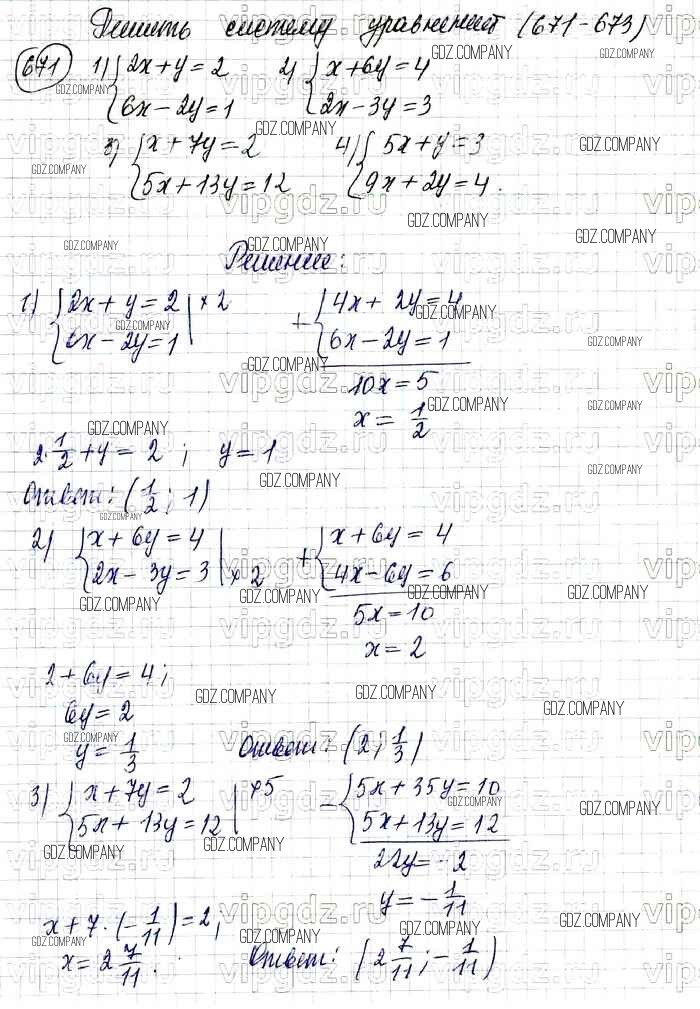 Решить систему уравнений (671-673)
671 1) { 2x+y=2 2) { x+6y=4
6x-2y=1 2x-3y=3
3) { x+7y=2 4) { 5x+y=3
5x+13y=12 9x+2y=4.
Решение:
1) { 2x+y=2 | ×2 + { 4x+2y=4
6x-2y=1 | 6x-2y=1
10x=5
x=1/2
2·1/2+y=2; y=1
Ответ: (1/2; 1)
2) { x+6y=4 + { x+6y=4
2x-3y=3 | ×2 4x-6y=6
5x=10
x=2
2+6y=4;
6y=2
y=1/3 Ответ: (2; 1/3)
3) { x+7y=2 | ×5 - { 5x+35y=10
5x+13y=12 | 5x+13y=12
22y=-2
y=-1/11
x+7·(-1/11)=2;
x=2 7/11. Ответ: (2 7/11; -1/11)
GDZ.COMPANY
vipgdz.ru